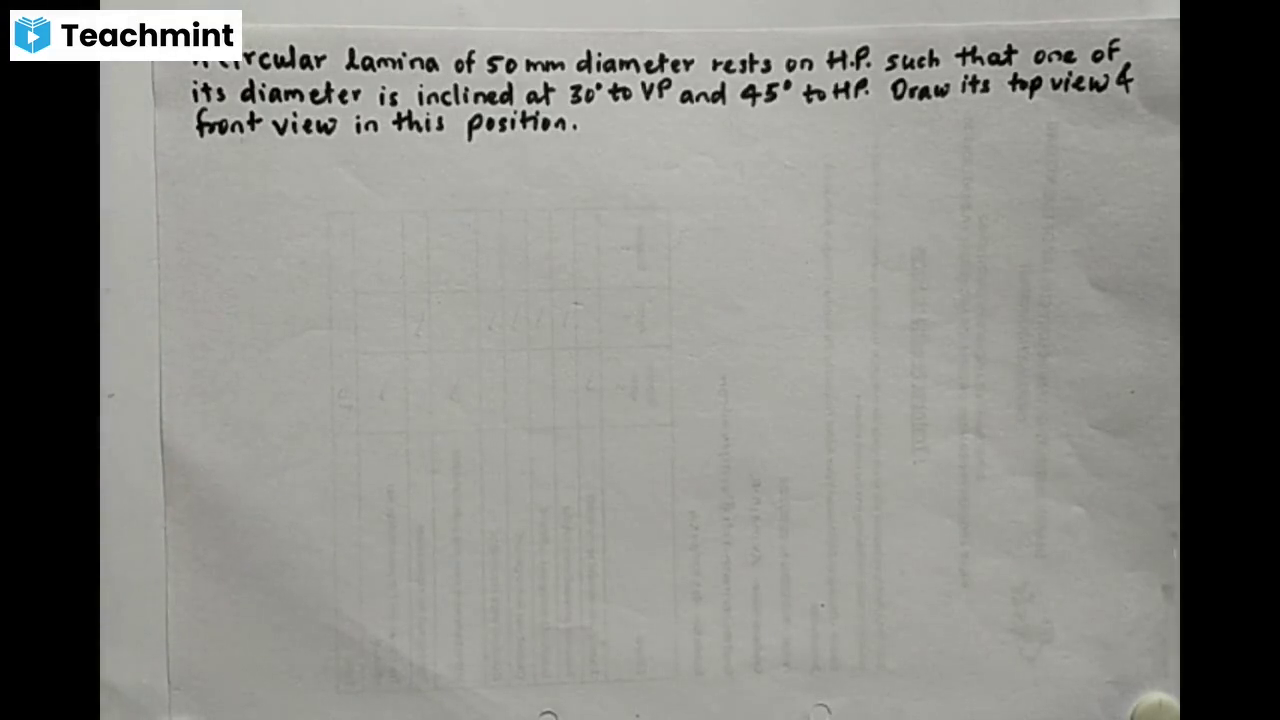 Teachmint
circular lamina of 50 mm diameter rests on H.P. such that one of
its diameter is inclined at 30° to VP and 45° to HP. Draw its top view &
front view in this position.